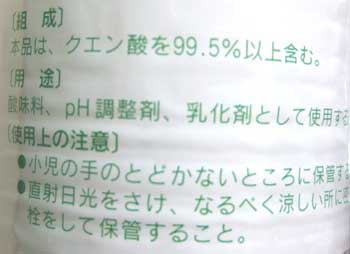 〔組 成〕
本品は、クエン酸を99.5%以上含む。
〔用 途〕
酸味料、pH調整剤、乳化剤として使用する
〔使用上の注意〕
●小児の手のとどかないところに保管する
●直射日光をさけ、なるべく涼しい所に密
栓をして保管すること。